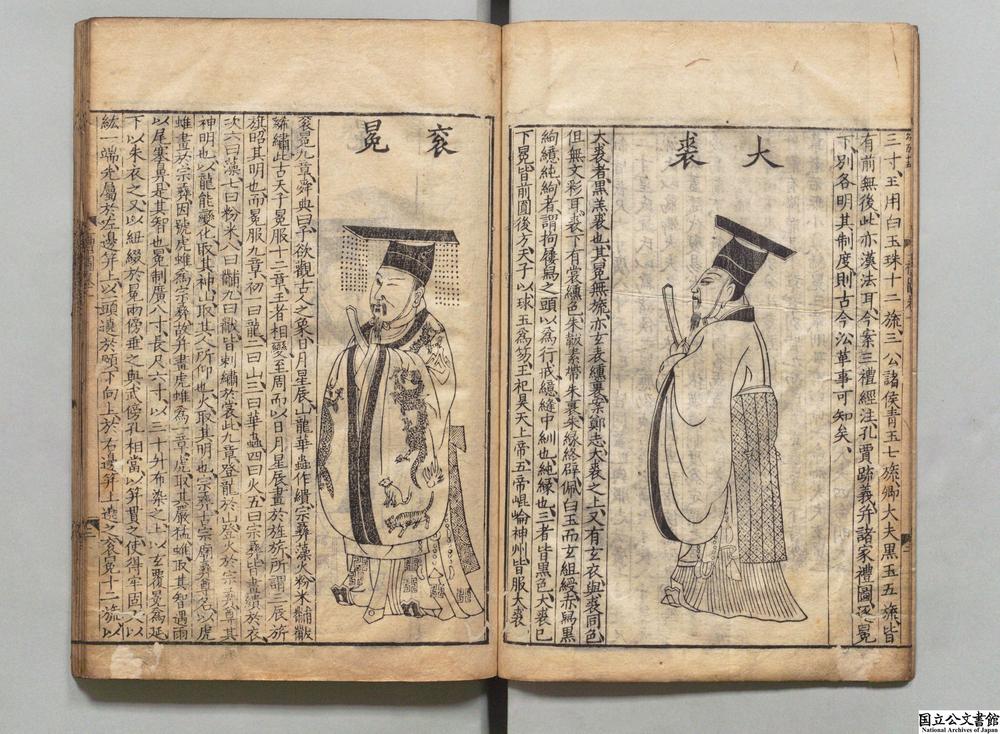 三寸、王用白玉珠十二旒、三公諸侯青玉七旒、卿大夫黑玉五旒、皆
有前無後、此亦漢法耳、今案三禮經注孔賈疏義并諸家禮圖逐冕
下別各明其制度則古今沿革事可知矣、
大裘
大裘者、黑羔裘也、其冕無旒、亦玄表纁裏、案鄭志大裘之上、又有玄衣、與裘同色、
但無文彩耳、裘下有裳纁色、朱韍素帶、朱裏、朱綠終辟、佩白玉而玄組綬、赤舄黑
絇繶純絇者謂拘屨舄之頭以爲行戒繶縫中紃也、純緣也、三者皆黑色、大裘已
下冕皆前圓後方、天子以球玉爲笏、王祀昊天上帝、五帝、崐崘神州、皆服大裘
袞冕
袞冕九章、舜典曰、予欲觀古人之象、日月星辰山龍華蟲作繢、宗彝藻火粉米黼黻
絺繡、此古天子冕服十二章、王者相變、至周而以日月星辰畫於旌旂、所謂三辰旂
旗昭其明也、而冕服九章、初一曰龍、二曰山、三曰華蟲、四曰火、五曰宗彝、皆畫繢於衣、
次六曰藻、七曰粉米、八曰黼、九曰黻、皆刺繡於裳、此九章登龍於山、登火於宗彝、尊其
神明也、以龍能變化、取其神、山取其人所仰也、火取其明也、宗彝古宗廟彝尊名、以虎
蜼畫於宗彝、因號虎蜼爲宗彝、故并畫虎蜼爲一章、虎取其嚴猛、蜼取其智、遇雨
以尾塞鼻、是其智也、冕制廣八寸、長尺六寸、以三十升布染之、上以玄覆、冕爲延、
下以朱衣之、又以紐綴於冕兩傍垂之、與武傍孔相當、以筓貫之、使得牢固、又以
紘一端先屬於左邊筓上、以一頭遶於頤下、向上於右邊筓上遶之、袞冕十二旒、以
国立公文書館
National Archives of Japan